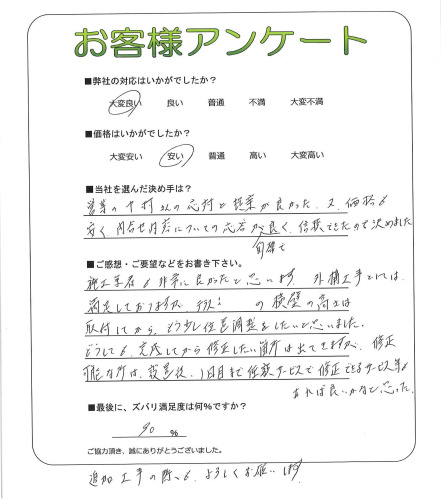 お客様アンケート
■弊社の対応はいかがでしたか？
大変良い 良い 普通 不満 大変不満
■価格はいかがでしたか？
大変安い 安い 普通 高い 大変高い
■当社を選んだ決め手は？
営業の中村さんの応対と提案が良かった。又、価格も
安く、問合せ内容についての応答が良く、信頼できたので決めました
■ご感想・ご要望などをお書き下さい。
施工業者も非常に良かったと思います。外構工事としては、
満足しておりますが、 の横壁の高さは
取付してから、もう少し位置調整をしたいと思いました。
どうしても、完成してから修正したい箇所は出てきますが、修正
可能な所は、設置後、1日目まで無償サービスで修正できるサービス等も
あれば良いかなと思った。
■最後に、ズバリ満足度は何％ですか？
90 ％
ご協力頂き、誠にありがとうございました。
追加工事の際も、よろしくお願いします